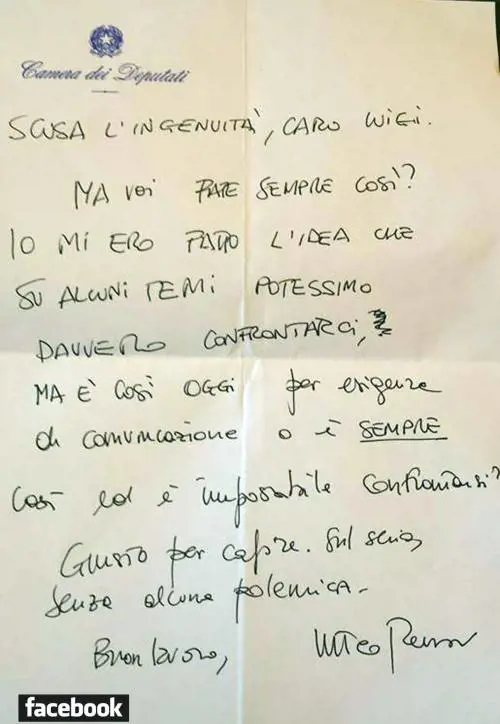 Camera dei Deputati
SCUSA L'INGENUITÀ, CARO LUIGI.
MA VOI FATE SEMPRE COSÌ?
IO MI ERO FATTO L'IDEA CHE
SU ALCUNI TEMI POTESSIMO
DAVVERO CONFRONTARCI,
MA È COSÌ OGGI per esigenze
di comunicazione o è SEMPRE
così ed è impossibile confrontarsi?
Giusto per capire. Sul serio,
senza alcuna polemica.
Buon lavoro,
Matteo Renzi
facebook